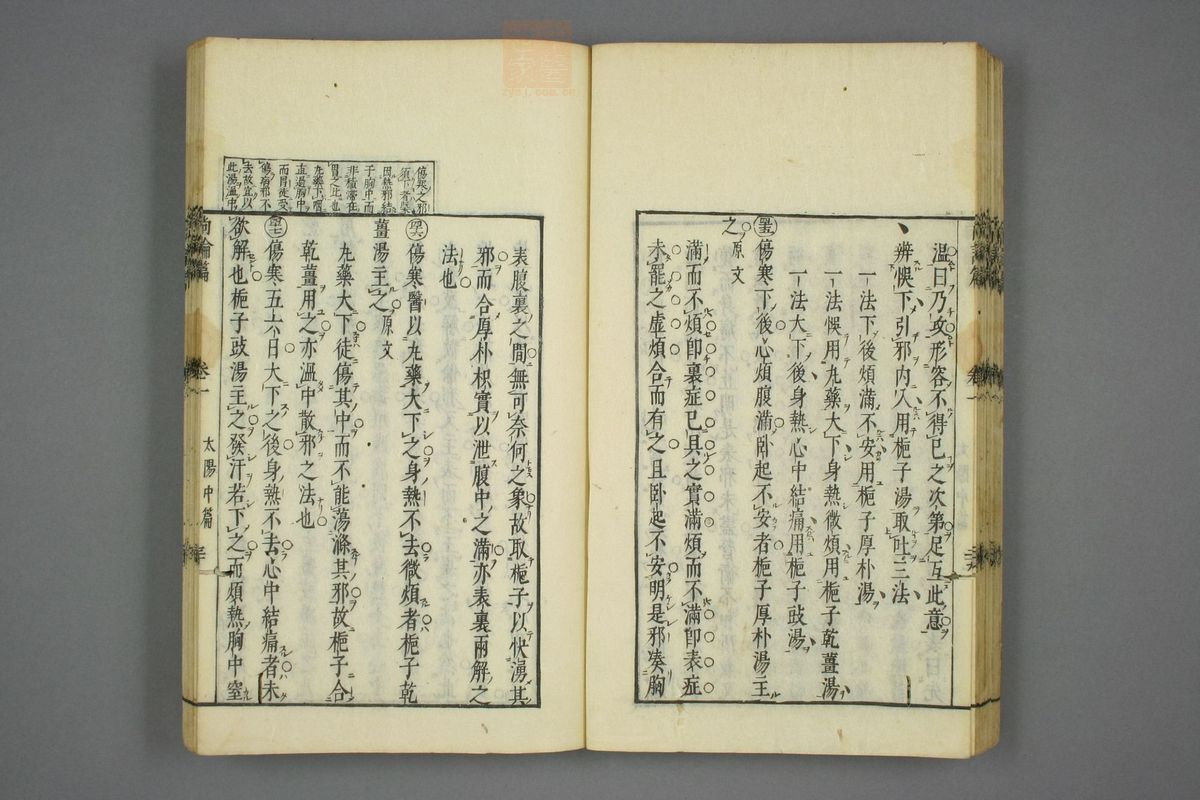 溫曰乃攻形容不得已之次第足互此意
辨悞下引邪內入用梔子湯取吐三法
一法下後煩滿不安用梔子厚朴湯
一法悞用丸藥大下身熱微煩用梔子乾薑湯
一法大下後身熱心中結痛用梔子豉湯
傷寒下後心煩腹滿卧起不安者梔子厚朴湯主
之原文
滿而不煩卽裏症已具之實滿煩而不滿卽表症
未罷之虛煩合而有之且卧起不安明是邪湊胸
表腹裏之間無可奈何之象故取梔子以快湧其
邪而合厚朴枳實以泄腹中之滿亦表裏兩解之
法也
傷寒醫以丸藥大下之身熱不去微煩者梔子乾
薑湯主之原文
丸藥大下徒傷其中而不能蕩滌其邪故梔子合
乾薑用之亦溫中散邪之法也
傷寒五六日大下之後身熱不去心中結痛者未
欲解也梔子豉湯主之發汗若下之而煩熱胸中窒
傷寒之邪
須下者
因熱邪結
于胸中而
非積滯在
胃之比也
丸藥下咽
直過胸中
而胃徒受
傷胸邪不
去故宜以
此湯溫中
尚論篇 卷一 太陽中篇